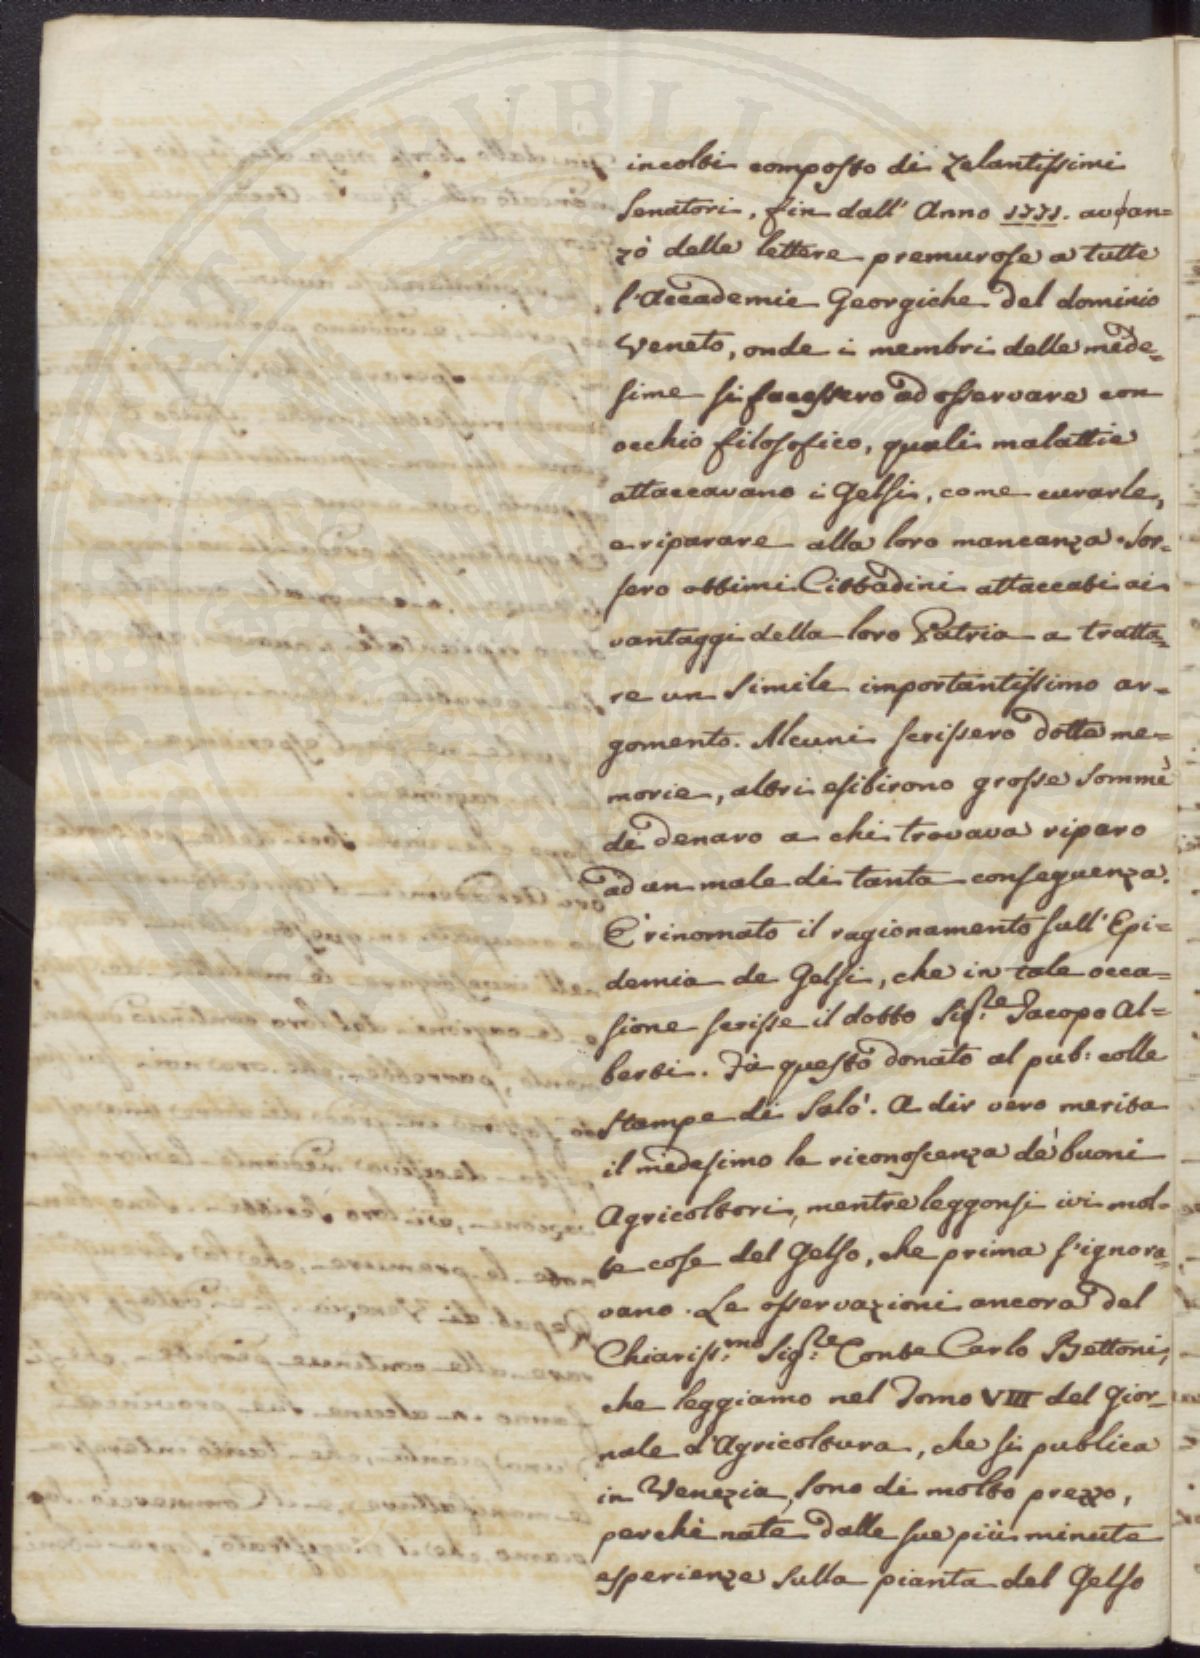 incolti composto di zelantissimi
Senatori, fin dall' Anno 1771. avvan=
zò delle lettere premurose a tutte
l'Accademie Georgiche del dominio
Veneto, onde i membri delle mede=
sime si facessero ad osservare con
occhio filosofico, quali malattie
attaccavano i Gelsi, come curarle,
e riparare alla loro mancanza. Sor=
sero ottimi Cittadini attaccati ai
vantaggi della loro Patria a tratta=
re un simile importantissimo ar=
gomento. Alcuni scrissero dotte me=
morie, altri esibirono grosse somme
di denaro a chi trovava riparo
ad un male di tanta conseguenza.
È rinomato il ragionamento sull' Epi=
demia de Gelsi, che in tale occa=
sione scrisse il dotto Sig:re Jacopo Al=
berti. Fù questo donato al pub: colle
stampe di Salò. A dir vero merita
il medesimo la riconoscenza de' buoni
Agricoltori, mentre leggonsi ivi mol=
te cose del Gelso, che prima s'ignora=
vano. Le osservazioni ancora del
Chiariss:mo Sig:re Conte Carlo Bettoni,
che leggiamo nel Tomo VIII del Gior=
nale d'Agricoltura, che si publica
in Venezia, sono di molto prezzo,
perchè nate dalle sue più minute
esperienze sulla pianta del Gelso